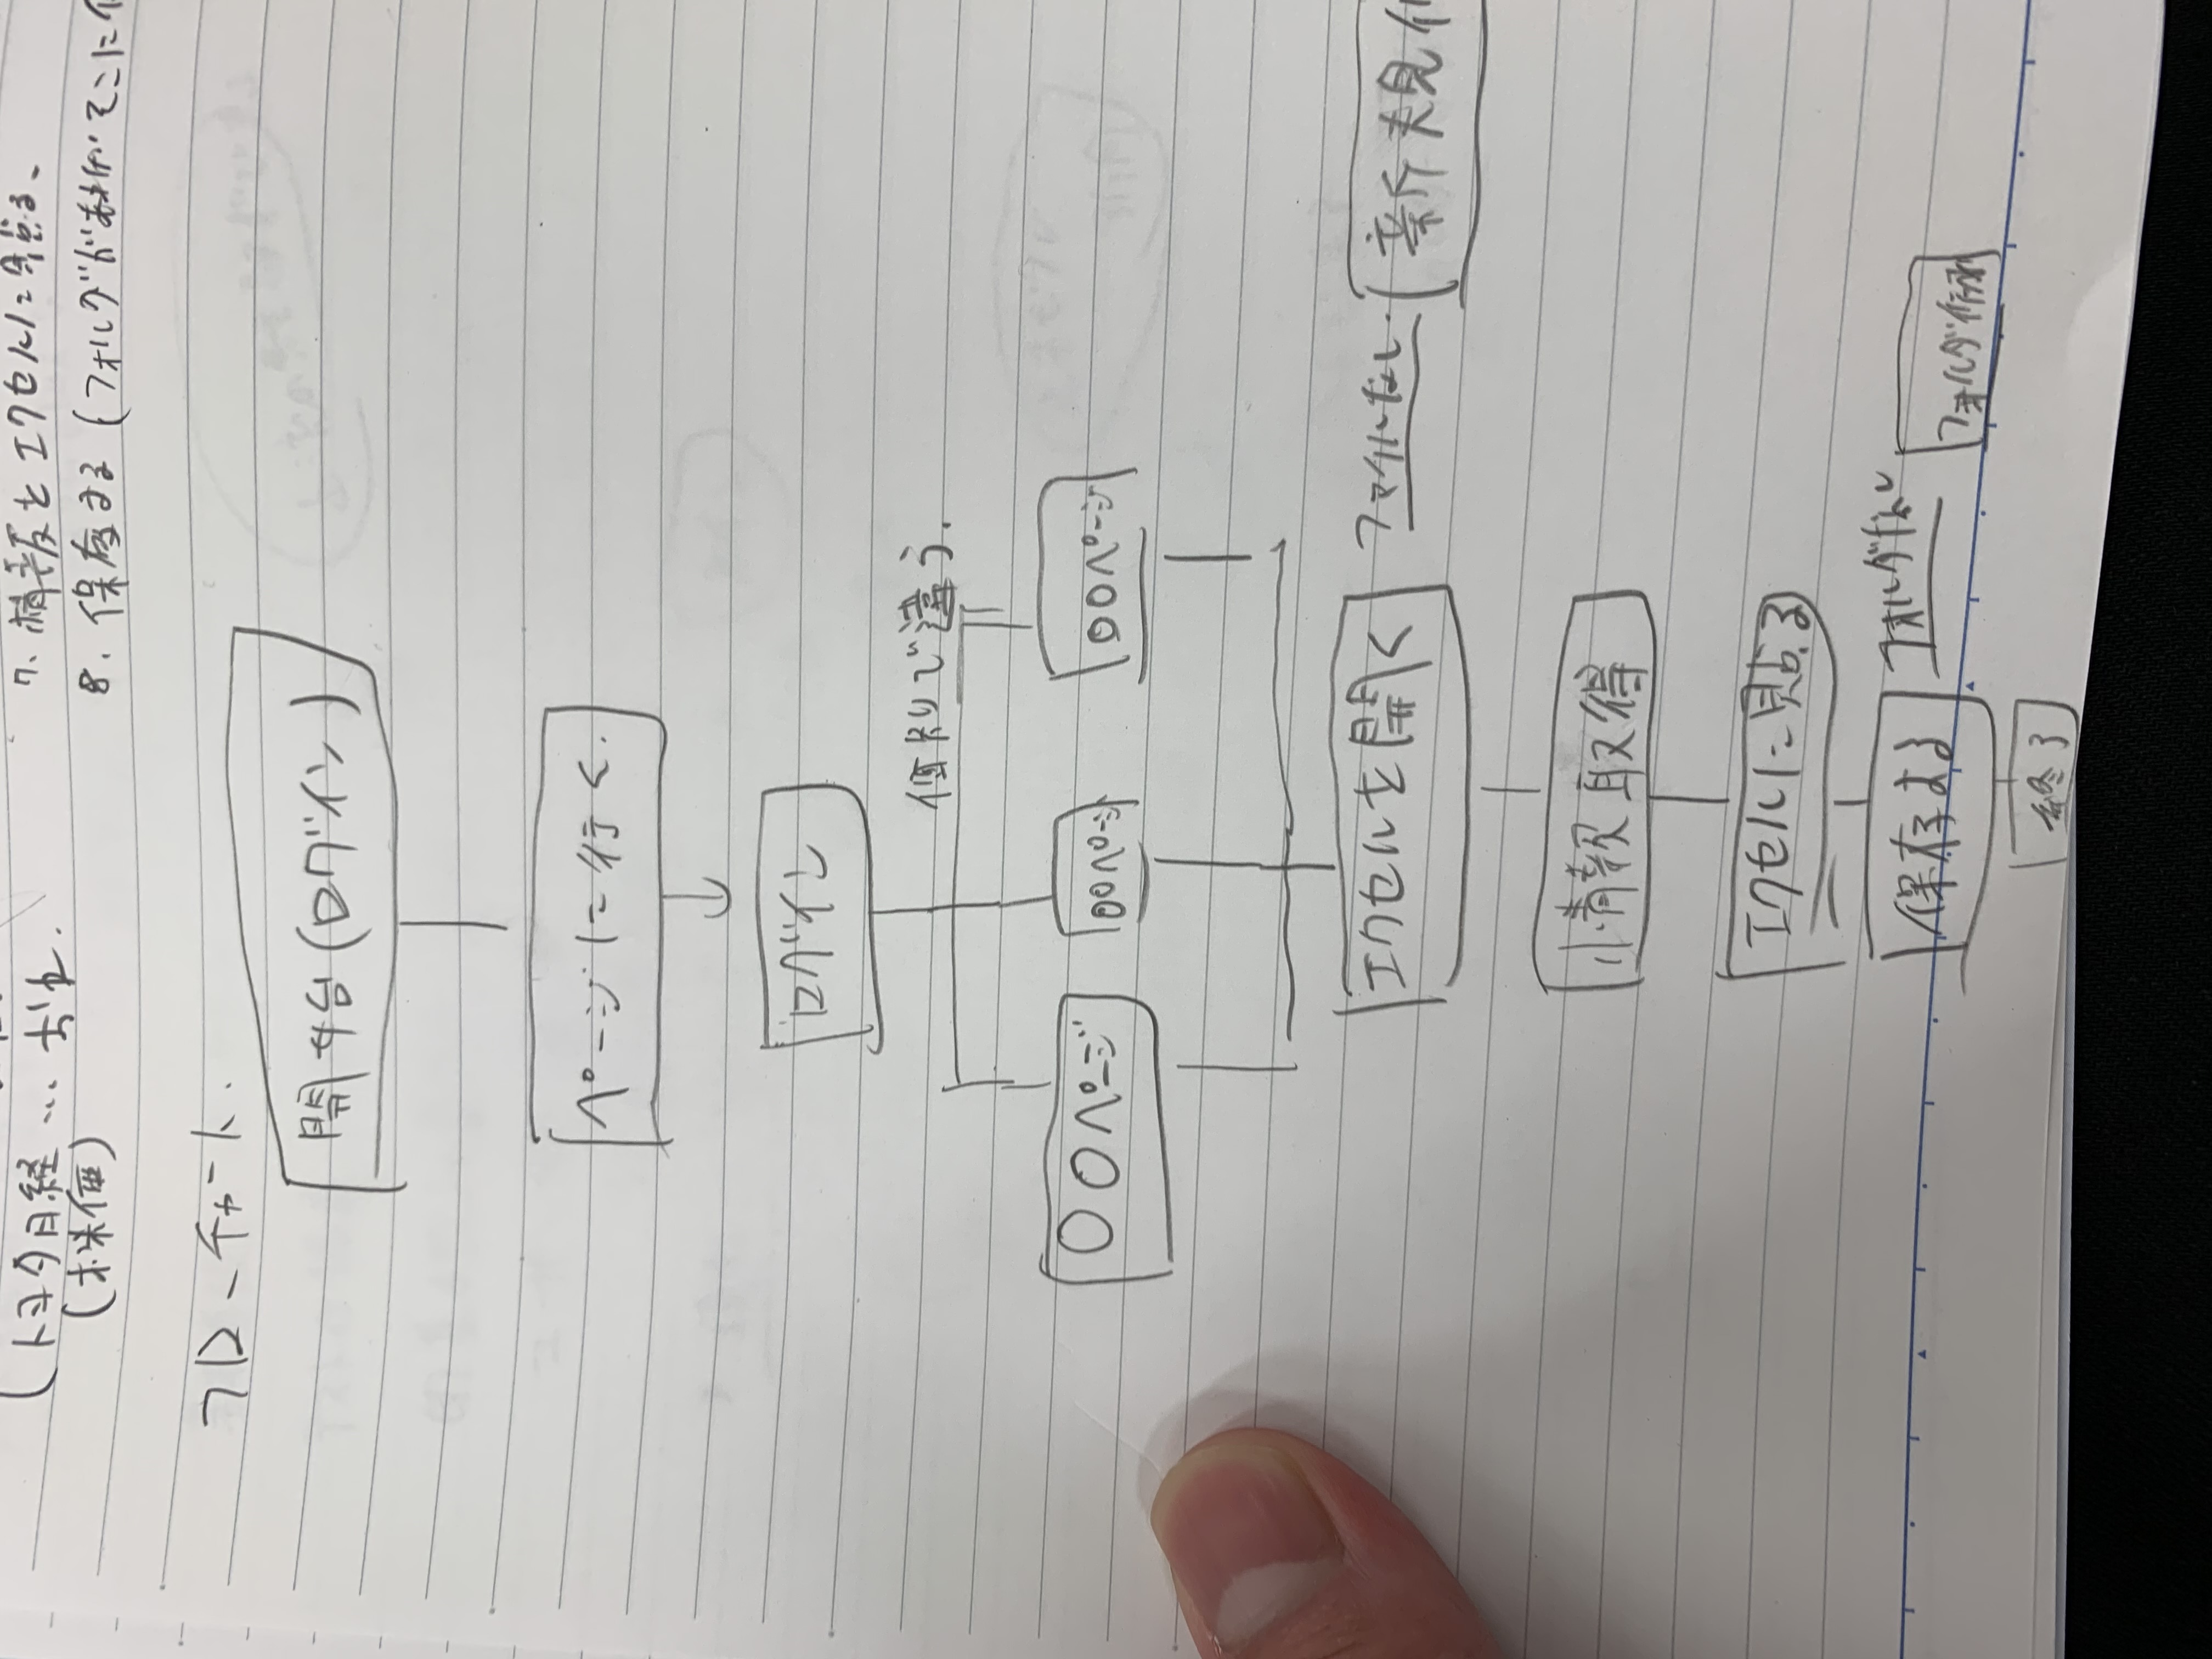 トヨタ日経…
(株価)
7. 情報をエクセルに貼る、
8. 保存する(フォルダがあればそこに
フローチャート.
開始(ログイン)
ページに行く.
ログイン
個別で違う.
〇〇ページ
〇〇ページ
〇〇ページ
エクセルを開く
ファイルなし.
新規作
情報取得
エクセルに貼る
保存する
フォルダなし
フォルダ作成
終了